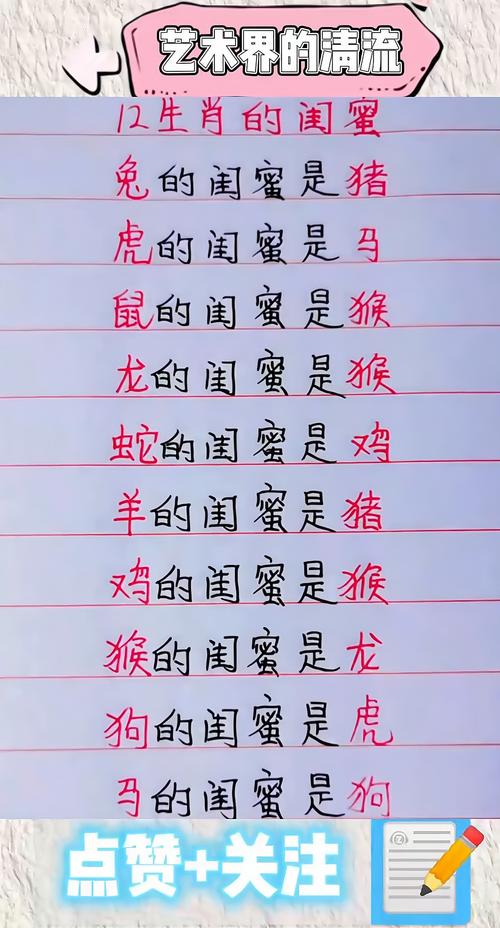 艺术界的清流
12生肖的闺蜜
兔的闺蜜是猪
虎的闺蜜是马
鼠的闺蜜是猴
龙的闺蜜是猴
蛇的闺蜜是鸡
羊的闺蜜是猪
鸡的闺蜜是猴
猴的闺蜜是龙
狗的闺蜜是虎
马的闺蜜是狗
点赞+关注